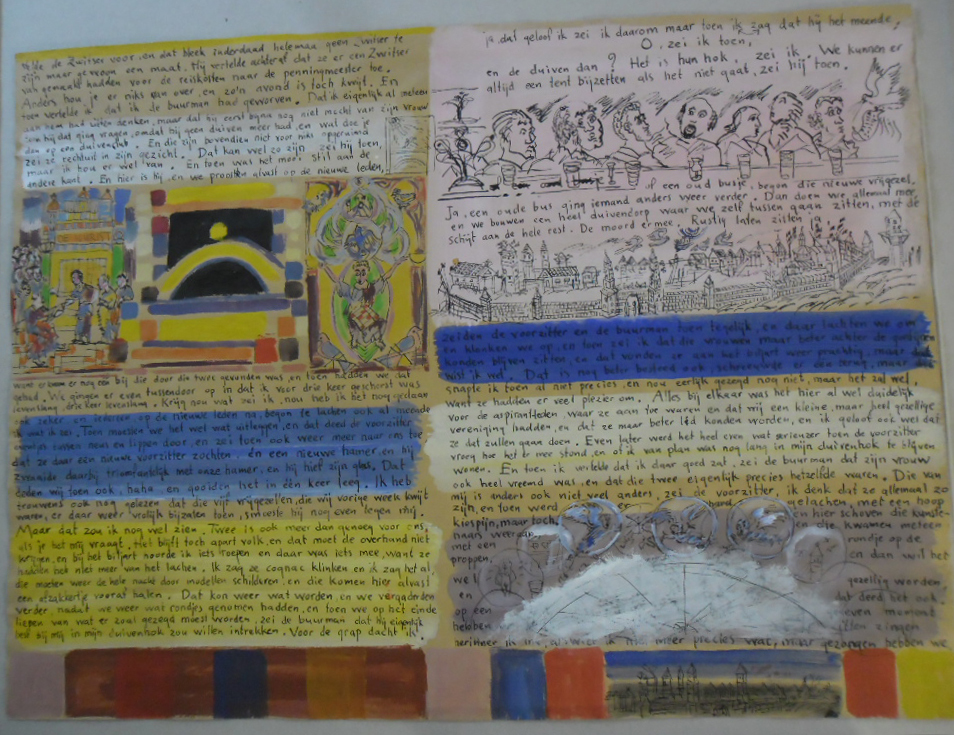 telde de Zwitser voor, en dat bleek inderdaad helemaal geen Zwitser te
zijn maar gewoon een maat. Hij vertelde achteraf dat ze er een Zwitser
van gemaakt hadden voor de reiskosten naar de penningmeester toe.
Anders hou je er niks aan over, en zo'n avond is toch kwijt. En
toen vertelde ik dat ik Je buurman had geworven. Dat ik eigenlijk al meteen
aan hem had zitten denken, maar dat hij eerst bijna nog niet mocht van zijn vrouw
om hij dat ging vragen, omdat hij geen duiven meer had, en wat doe je
dan op een duivenclub. En die zijn bovendien niet voor niks opgeruimd
zei ze rechtuit in zijn gezicht. Dat kan wel zo zijn zei hij toen,
maar ik hou er wel van. En toen was het mooi stil aan de
andere kant. En hier is hij, en we proostten alvast op de nieuwe leden,
want er kwam er nog een bij die door die twee gevonden was, en toen hadden we dat
gehad. We gingen er even tussendoor op in dat ik voor drie keer geschorst was
levenslang, drie keer levenslang. Krijg nou wat zei ik, nou heb ik het nog gedaan
ook zeker, en iedereen op de nieuwe leden na, begon te lachen ook al meende
ik wat ik zei. Toen moesten we het wel wat uitleggen, en dat deed de voorzitter
eventjes tussen neus en lippen door, en zei toen ook weer meer naar ons toe
dat ze daar een nieuwe voorzitter zochten, en een nieuwe hamer, en hij
zwaaide daarbij triomfantelijk met onze hamer, en hij hief zijn glas. Dat
deden wij toen ook, haha, en gooiden het in één keer leeg. Ik heb
trouwens ook nog gelezen dat die vijf vrijgezellen, die wij vorige week kwijt
waren, er daar weer vrolijk bijzaten toen, smoesde hij nog even tegen mij.
Maar dat zou ik nog wel zien. Twee is ook meer dan genoeg voor ons,
als je het mij vraagt. Het blijft toch apart volk, en dat moet de overhand niet
krijgen, en bij het biljart hoorde ik iets roepen en daar was iets mee, want ze
hadden het niet meer van het lachen. Ik zag ze cognac klinken en ik zag het al,
die moeten weer de hele nacht door modellen schilderen, en die komen hier alvast
een afzakkertje vooraf halen. Dat kon weer wat worden, en we vergaderden
verder nadat we weer wat rondjes genomen hadden, en toen we op het einde
liepen van wat er zoal gezegd moest worden, zei de buurman dat hij eigenlijk
best bij mij in mijn duivenhok zou willen intrekken. Voor de grap dacht ik.
ja, dat geloof ik zei ik daarom maar toen ik zag dat hij het meende,
O, zei ik toen,
en de duiven dan? Het is hun hok, zei ik. We kunnen er
altijd een tent bijzetten als het niet gaat, zei hij toen.
of een oud busje, begon die nieuwe vrijgezel.
Ja, een oude bus ging iemand anders weer verder. Dan doen we allemaal mee,
en we bouwen een heel duivendorp waar we zelf tussen gaan zitten, met de
schijt aan de hele rest. De moord ermee. Rustig laten zitten ja,
zeiden de voorzitter en de buurman toen tegelijk, en daar lachten we om
en klonken we op, en toen zei ik dat die vrouwen maar beter achter de gordijnen
konden blijven zitten, en dat vonden ze aan het biljart weer prachtig, maar
Dat is nog beter bedoeld ook, schreeuwde er een terug, maar dat
snapte ik toen al niet precies, en nou eerlijk gezegd nog niet, maar het zal wel,
want ze hadden er veel plezier om. Alles bij elkaar was het hier al wel duidelijk
voor de aspirantleden, waar ze aan toe waren en dat wij een kleine, maar heel gezellige
vereniging hadden, en dat ze maar beter lid konden worden, en ik geloof ook wel dat
ze dat zullen gaan doen. Even later werd het heel even wat serieuzer toen de voorzitter
vroeg hoe het er mee stond, en of ik van plan was nog lang in mijn duivenhok te blijven
wonen. En toen ik vertelde dat ik daar goed zat, zei de buurman dat zijn vrouw
ook heel vreemd was, en dat die twee eigenlijk precies hetzelfde waren. Die van
mij is anders ook niet veel anders, zei de voorzitter, ik denk dat ze allemaal zo
zijn, en toen werd er lachen met de hoop
en hier schreven die kunste-
kiospijn, maar toch die kwamen meteen
naars weer rondje op de
met een en dan wil het
proppen,
wel gezellig worden,
en dat derd het ook
op een even moment
hebben zitten zingen
herinner ik mij, alweer ik niet meer precies wat, maar gezongen hebben we